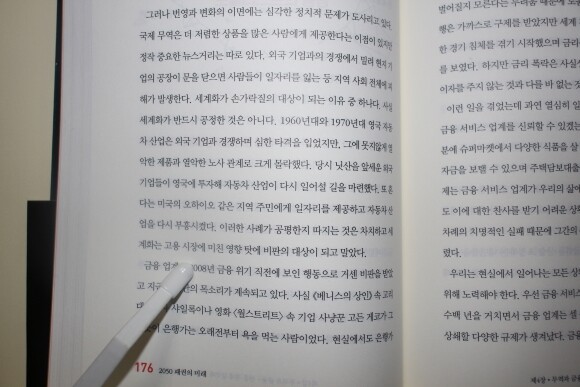 그러나 번영과 변화의 이면에는 심각한 정치적 문제가 도사리고 있다.
국제 무역은 더 저렴한 상품을 많은 사람에게 제공한다는 이점이 있지만
정작 중요한 뉴스거리는 따로 있다. 외국 기업과의 경쟁에서 밀려 현지 기
업의 공장이 문을 닫으면 사람들이 일자리를 잃는 등 지역 사회 전체에 피
해가 발생한다. 세계화가 손가락질의 대상이 되는 이유 중 하나다. 사실
세계화가 반드시 공정한 것은 아니다. 1960년대와 1970년대 영국 자동
차 산업은 외국 기업과 경쟁하며 심한 타격을 입었지만, 그에 못지않게 형
악한 제품과 열악한 노사 관계로 크게 몰락했다. 당시 닛산을 앞세운 외국
기업들이 영국에 투자해 자동차 산업이 다시 일어설 길을 마련했다. 또 혼
다는 미국의 오하이오 같은 지역 주민에게 일자리를 제공하고 자동차 산
업을 다시 부흥시켰다. 이러한 사례가 공평한지 따지는 것은 차치하고 세
계화는 고용 시장에 미친 영향 탓에 비판의 대상이 되고 말았다.
금융 업계 2008년 금융 위기 직전에 보인 행동으로 거센 비판을 받았
고 지금 의 목소리가 계속되고 있다. 사실 《베니스의 상인》 속 고리
대 샤일록이나 영화 〈월스트리트〉 속 기업 사냥꾼 고든 게코가 그
은행가는 오래전부터 욕을 먹는 사람이었다. 현실에서도 은행가
176 2050 패권의 미래
떨어질지 모른다는 두려움 때문에
행은 가까스로 구제를 받았지만 세계
한 경기 침체를 겪기 시작했으며 금리
를 보였다. 하지만 금리 폭락은 사실상
이자를 주지 않는 것과 다를 바 없는
이런 일을 겪었는데 과연 열심히 일
금융 서비스 업계를 신뢰할 수 있겠는
분에 슈퍼마켓에서 다양한 식품을 살
자금을 보낼 수 있으며 주택담보대출
제는 금융 서비스 업계가 우리의 삶에
도 이에 대한 찬사를 받기 어려운 상
차례의 치명적인 실패 때문에 그간의
렸다.
우리는 현실에서 일어나는 모든 성
위해 노력해야 한다. 우선 금융 서비스
수백 년을 거치면서 금융 업계는 셀
상해할 다양한 규제가 생겨났다. 금융
제4장 • 무역과 금융